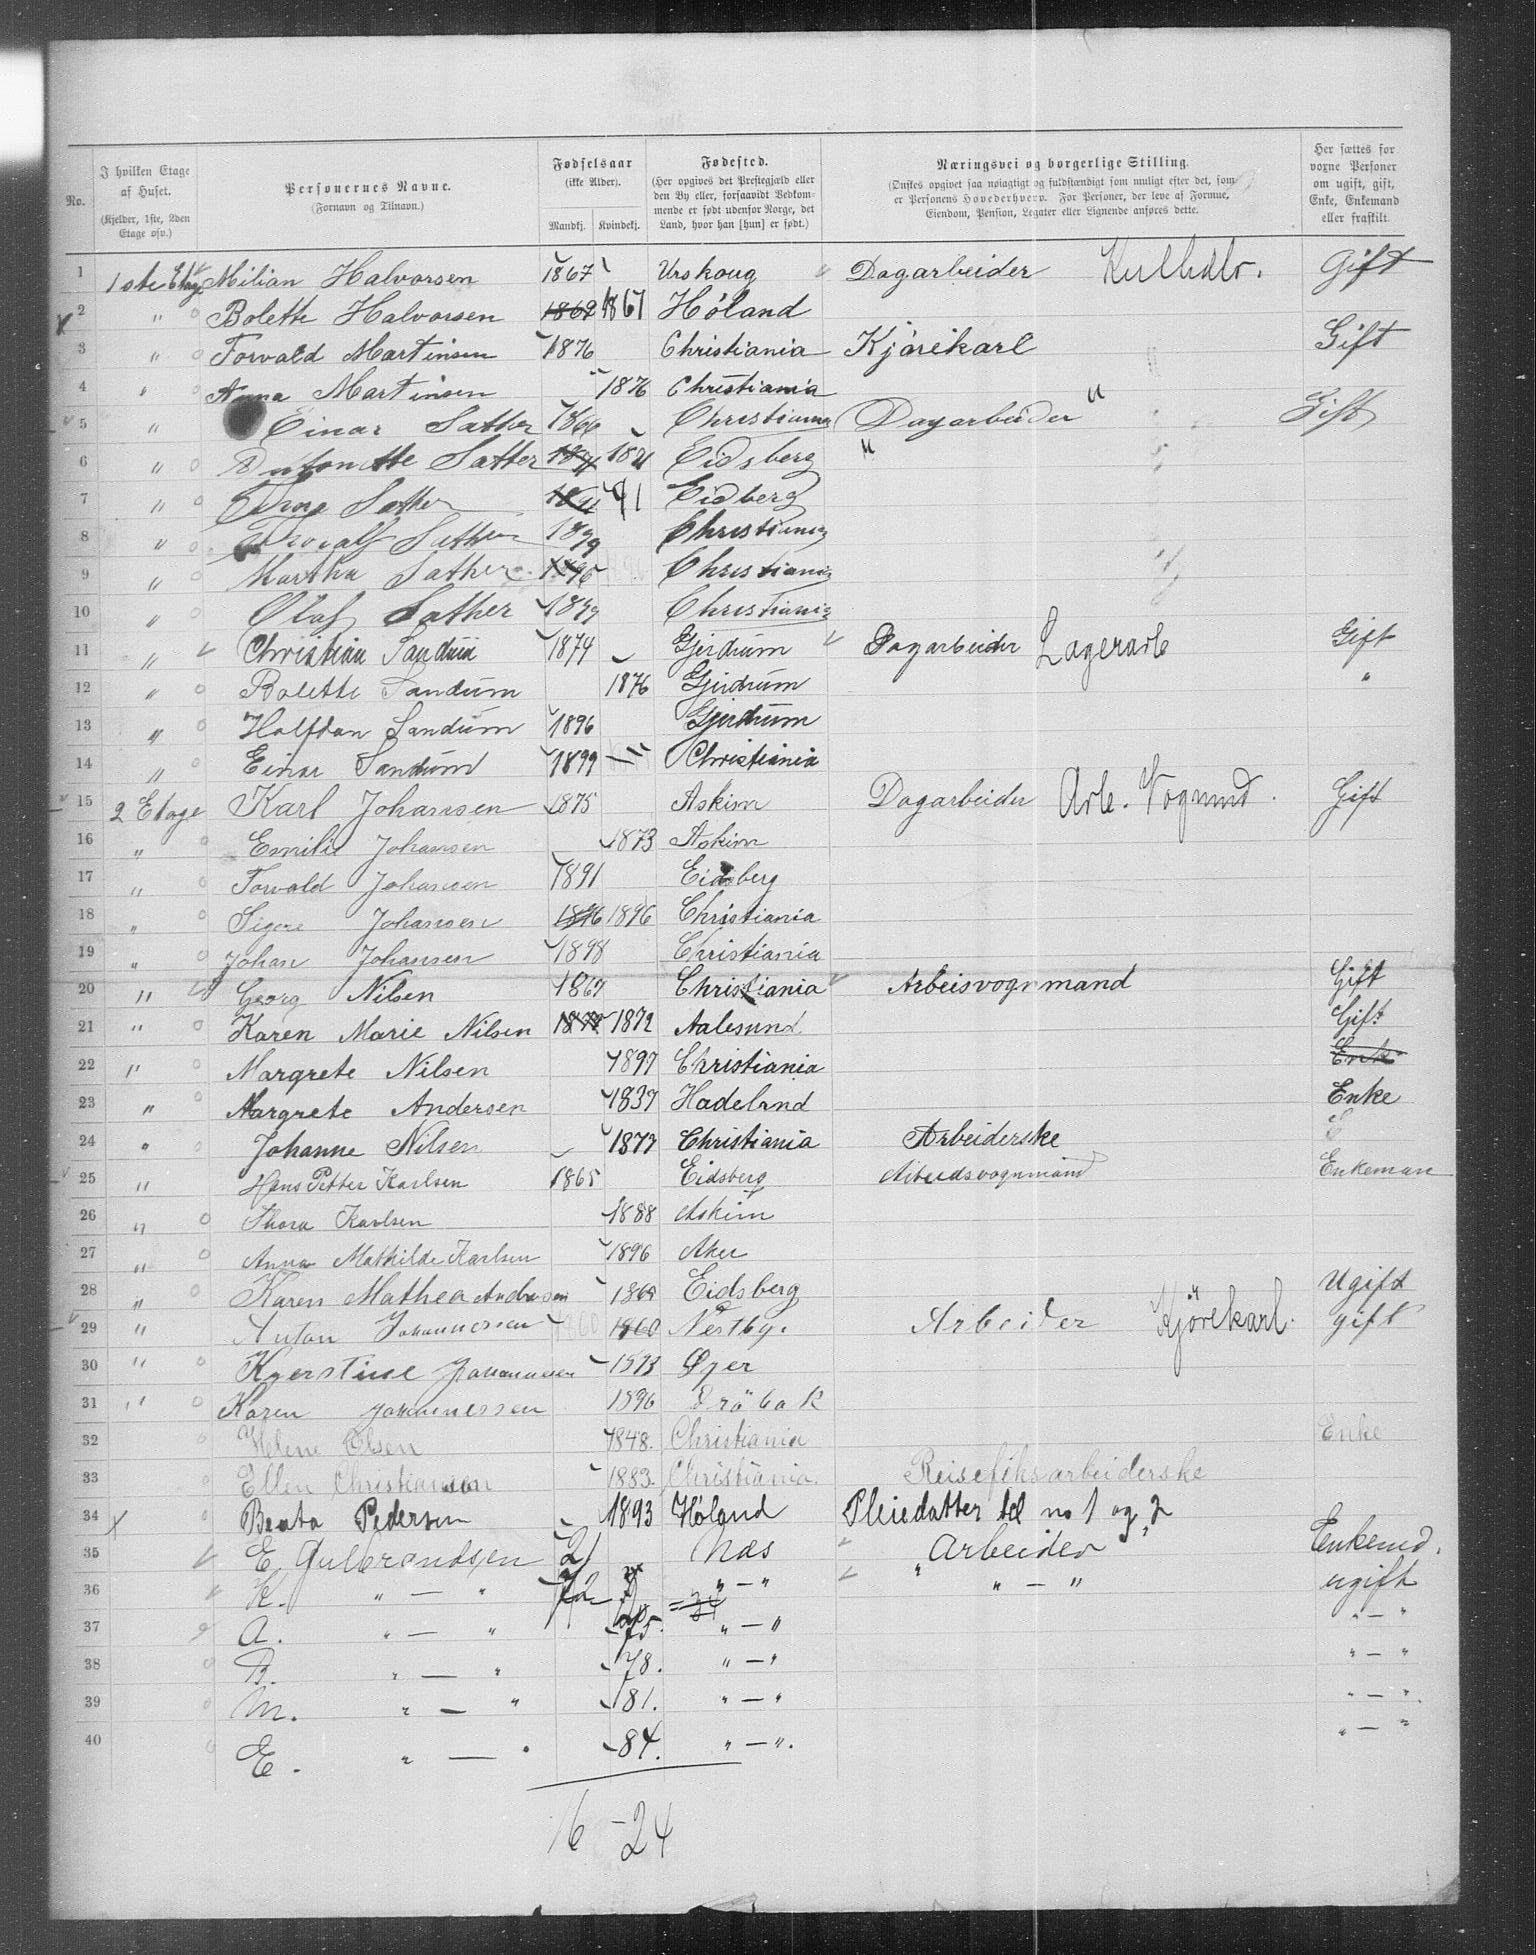 No.
I hvilken Etage af Huset. (Kjelder, 1ste, 2den Etage osv.)
Personernes Navne. (Fornavn og Tilnavn.)
Fødselsaar (ikke Alder). Mandkj. Kvindekj.
Fødested. (Her opgives det Prestegjæld eller den By eller, forsaavidt Vedkommende er født udenfor Norge, det Land, hvor han [hun] er født.)
Næringsvei og borgerlige Stilling. (Ønskes opgivet saa nøiagtigt og fuldstændigt som muligt efter det, som er Personens Hovederhverv. For Personer, der leve af Formue, Eiendom, Pension, Legater eller Lignende anføres dette.
Her sættes for vorne Personer om ugift, gift, Enke, Enkemand eller fraskilt.
1 1ste Etage Milian Halvorsen 1867 Urskoug Dagarbeider Kulhdlr. Gift
2 " Bolette Halvorsen 1867 Høland
3 " Torvald Martinsen 1876 Christiania Kjørekarl Gift
4 " Anna Martinsen 1876 Christiania "
5 " Einar Sather 1866 Christiania Dagarbeider Gift
6 " Antonette Sather Eidsberg "
7 " Sather Eidberg
8 " Sather 1899 Christiania
9 " Martha Sather Christiania
10 " Olaf Sather 1899 Christiania
11 " Christian Sandum 1874 Gjerdrum Dagarbeider Lagerarb Gift
12 " Bolette Sandum 1876 Gjerdrum "
13 " Halfdan Sandum 1896 Gjerdrum
14 " Einar Sandum 1899 Christiania
15 2 Etage Karl Johansen 1875 Askim Dagarbeider Arb. Vognmd. Gift
16 " Emilie Johansen 1873 Askim
17 " Torvald Johansen 1891 Eidsberg
18 " Signe Johansen 1896 1896 Christiania
19 " Johan Johansen 1898 Christiania
20 " Georg Nilsen 1867 Christiania Arbeisvognmand Gift
21 " Karen Marie Nilsen 1872 1872 Aalesund. Gift
22 " Margrete Nilsen 1897 Christiania Enke
23 " Margrete Andersen 1837 Hadeland Enke
24 " Johanne Nilsen 1873 Christiania Arbeiderske E
25 " Hans Petter Karlsen 1865 Eidsberg Arbeidsvognmand Enkeman
26 " Thora Karlsen 1888 Askim
27 " Anna Mathilde Karlsen 1896 Aker
28 " Karen Mathea Andersen 1869 Eidsberg Ugift
29 " Anton Johannessen 1860 1860 Nestby. Arbeider Kjörekarl. gift
30 " Kjerstine Johannessen 1873 Øyer
31 " Karen Johannessen 1896 Dröbak
32 Helene Olsen 1848. Christiania Enke
33 Ellen Christiansen 1883. Christiania. Reiseféksarbeiderske
34 Beata Pedersen 1893 Høland Pleiedatter til no 1 og 2
35 E. Gulbrandsen 21 Næs Arbeider Enkemd.
36 K. " — " 72 " — " " — " ugift
37 A. " — " 75. " — " " — "
38 B. " — " 78. " — " " — "
39 M. " — " 81. " — " " — "
40 E. " — " 84. " — ". " — "
16 – 24